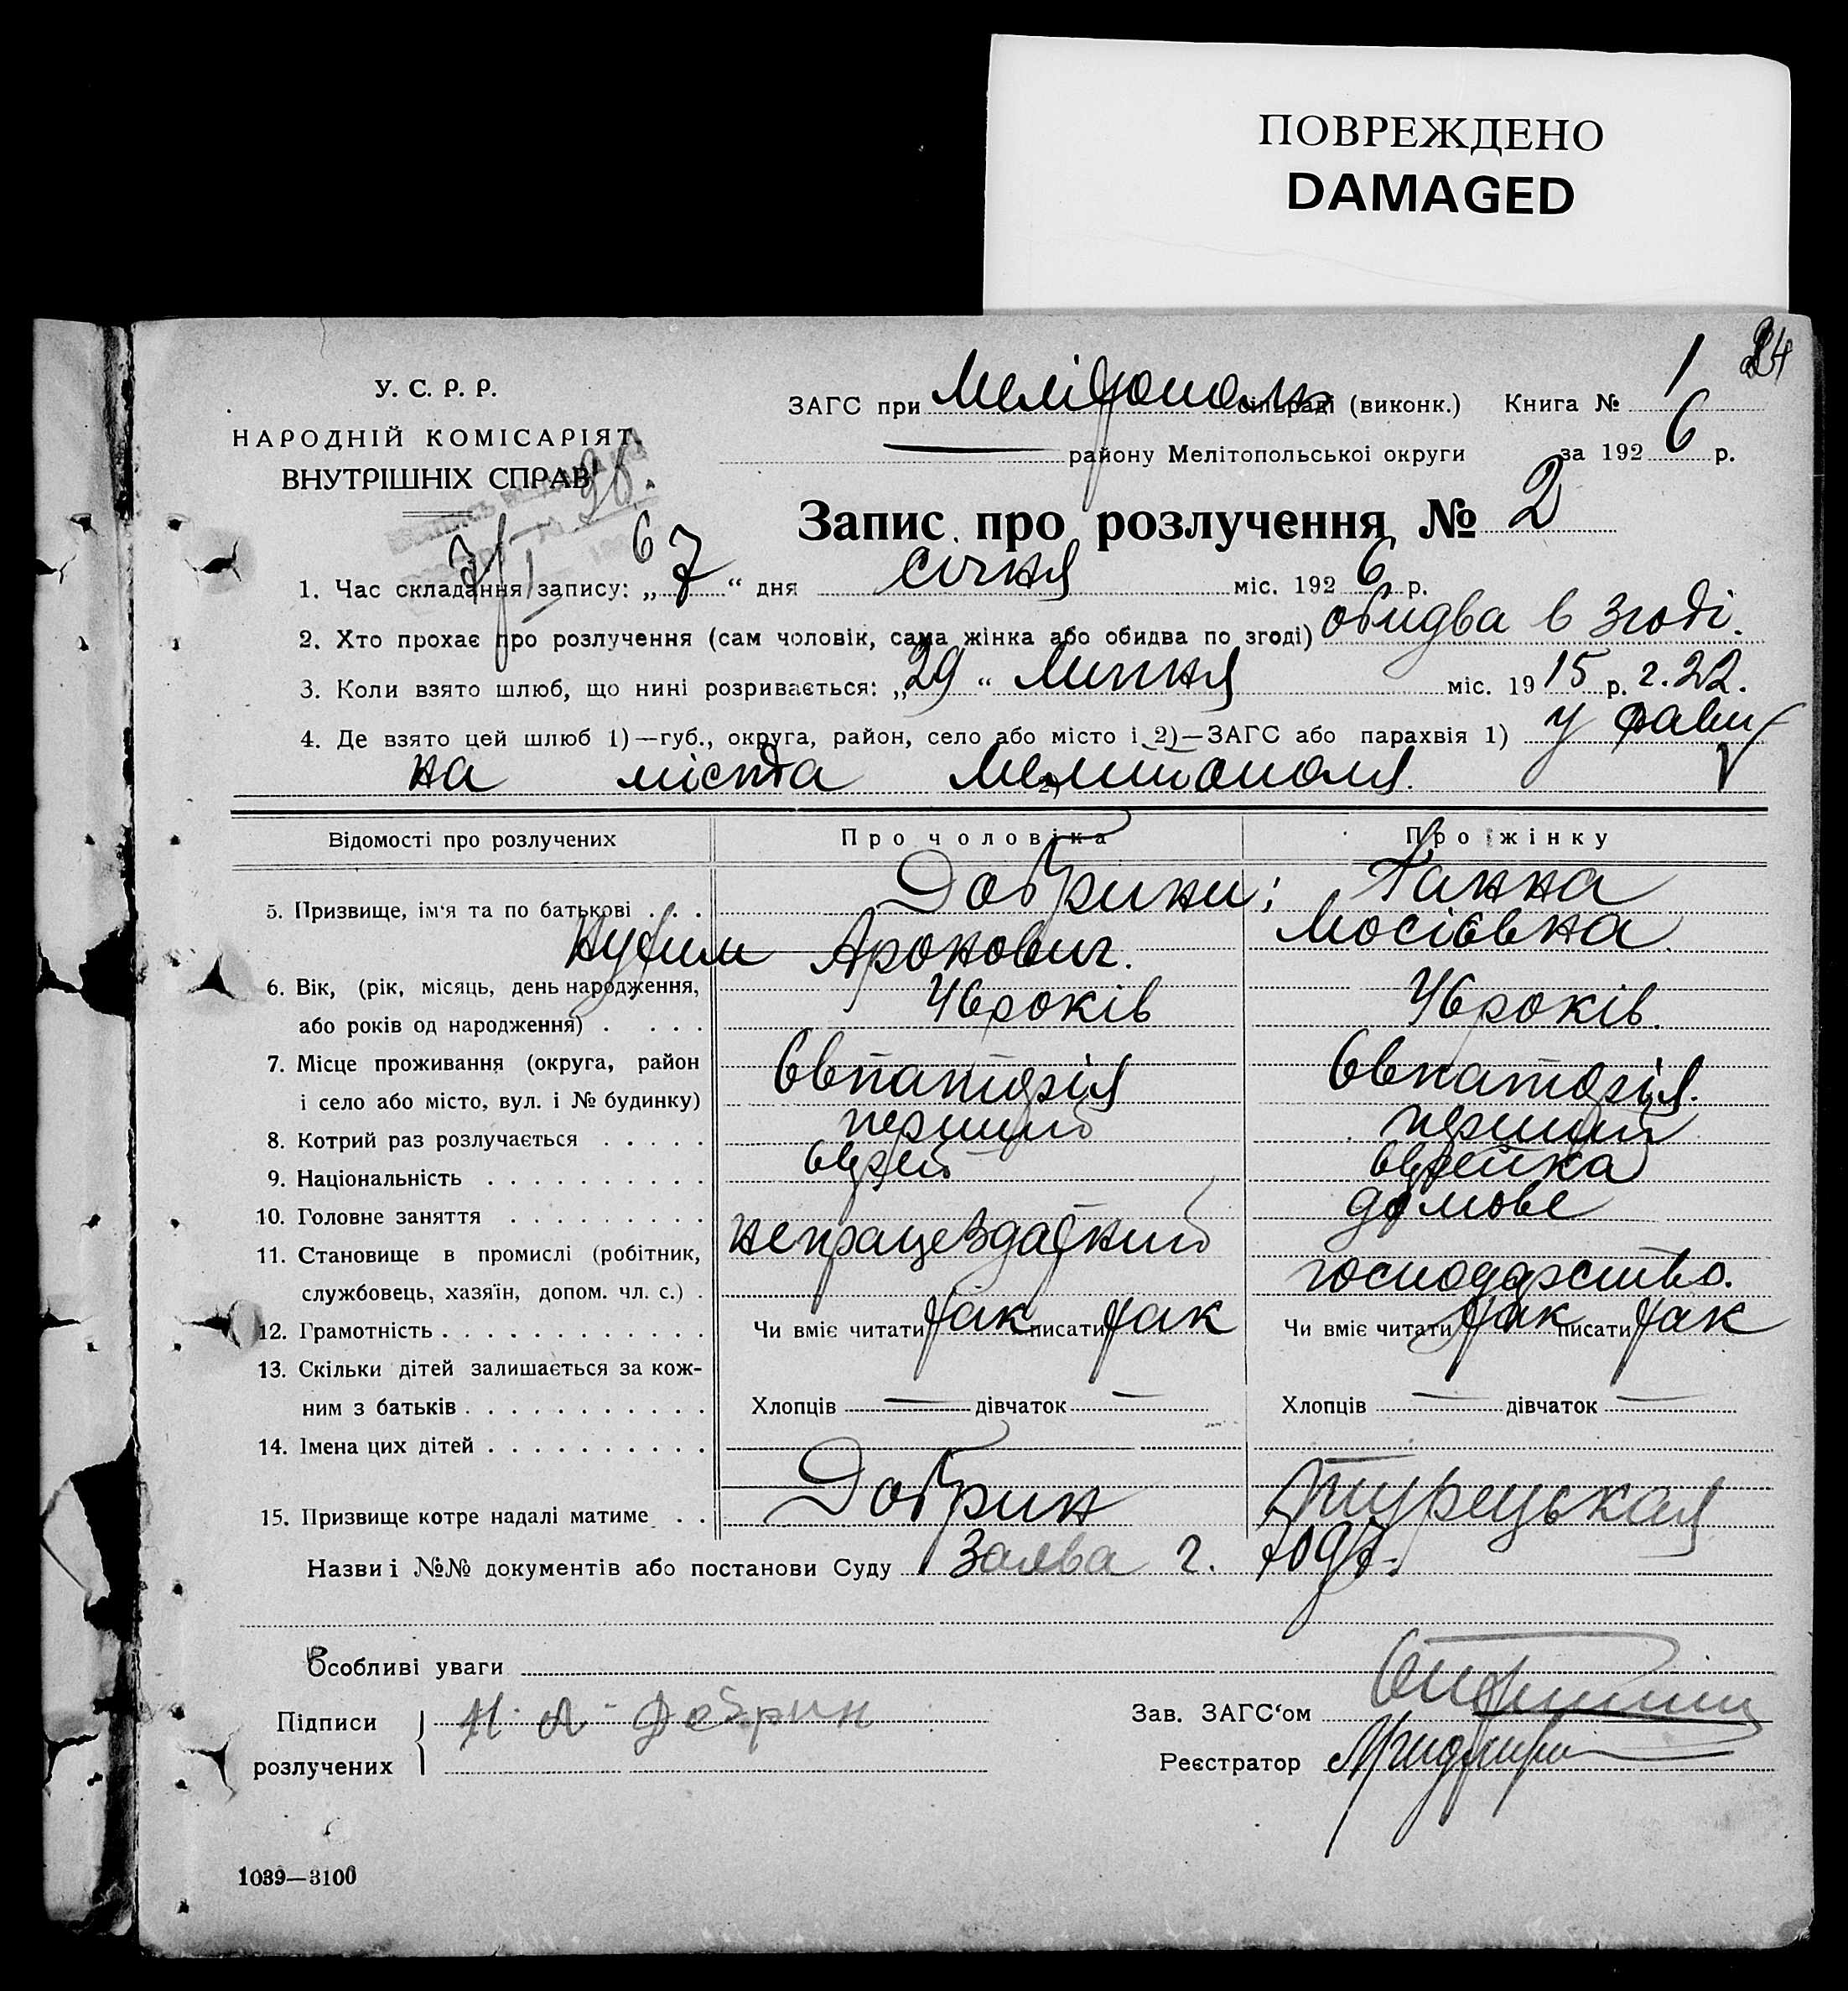 ПОВРЕЖДЕНО
DAMAGED
24
У. С. Р. Р.
НАРОДНІЙ КОМІСАРІЯТ
ВНУТРІШНІХ СПРАВ
ЗАГС при Мелітополь сільраді (виконк.) Книга № 1
району Мелітопольської округи за 1926 р.
Запис про розлучення № 2
7/I 26.
1. Час складання запису: „ 7 “ дня січня міс. 1926 р.
2. Хто прохає про розлучення (сам чоловік, сама жінка або обидва по згоді) обидва в згоді.
3. Коли взято шлюб, що нині розривається: „29“ Липня міс. 1915 р. г. 22.
4. Де взято цей шлюб 1)—губ., округа, район, село або місто і 2)—ЗАГС або парахвія 1) у рави
на міста 2) Мелитополя.
Відомості про розлучених
Про чоловіка
Про жінку
5. Призвище, ім'я та по батькові . . . Добрини; Ганна
Нухим Аронович. Мосіївна.
6. Вік, (рік, місяць, день народження,
або років од народження) . . . . . 46 років 46 років.
7. Місце проживання (округа, район
і село або місто, вул. і № будинку) Євпаторія Євпаторія.
8. Котрий раз розлучається . . . . . перший перший
9. Національність . . . . . . . . . . єврей єврейка
10. Головне заняття . . . . . . . . . непрацездатний домове
11. Становище в промислі (робітник,
службовець, хазяїн, допом. чл. с.) . господарство.
12. Грамотність . . . . . . . . . . . . Чи вміє читати так писати так Чи вміє читати так писати так
13. Скільки дітей залишається за кож-
ним з батьків . . . . . . . . . . . Хлопців — дівчаток — Хлопців — дівчаток —
14. Імена цих дітей . . . . . . . . . .
15. Призвище котре надалі матиме . . Добрин Турецькая
Назви і №№ документів або постанови Суду Заява г.
Особливі уваги
Підписи
розлучених
Н. А. Добрин
Зав. ЗАГС‘ом
Реєстратор
1039—3100